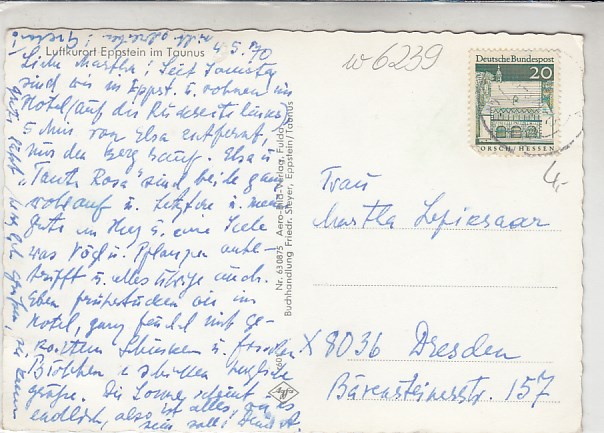 Luftkurort Eppstein im Taunus
4.5.70
Liebe Martha! Seit Samstag
sind wir in Eppst. u. wohnen im
Hotel (auf der Rückseite links)
5 Min von Elsa entfernt,
nur den Berg rauf. Elsa u
"Tante Rosa" sind beide ganz
wohlauf u.
gute im Herz u. eine Seele
was Vögel u. Pflanzen anbe-
trifft u. alles übrige auch.
Eben frühstücken wir im
Hotel, ganz feudal mit ge-
kochtem Schinken u. frischen
Brötchen u schicken herzliche
Grüße. Die Sonne scheint
endlich, also ist alles, wie es
sein soll!
w 6239
Deutsche Bundespost
20
LORSCH/HESSEN
4,-
Frau
Martha
X 8036 Dresden
Bärensteinerstr. 157
Nr. 630875 Aero-Bild-Verlag, Fulda
Buchhandlung Friedr. Steyer, Eppstein/Taunus
Agfa